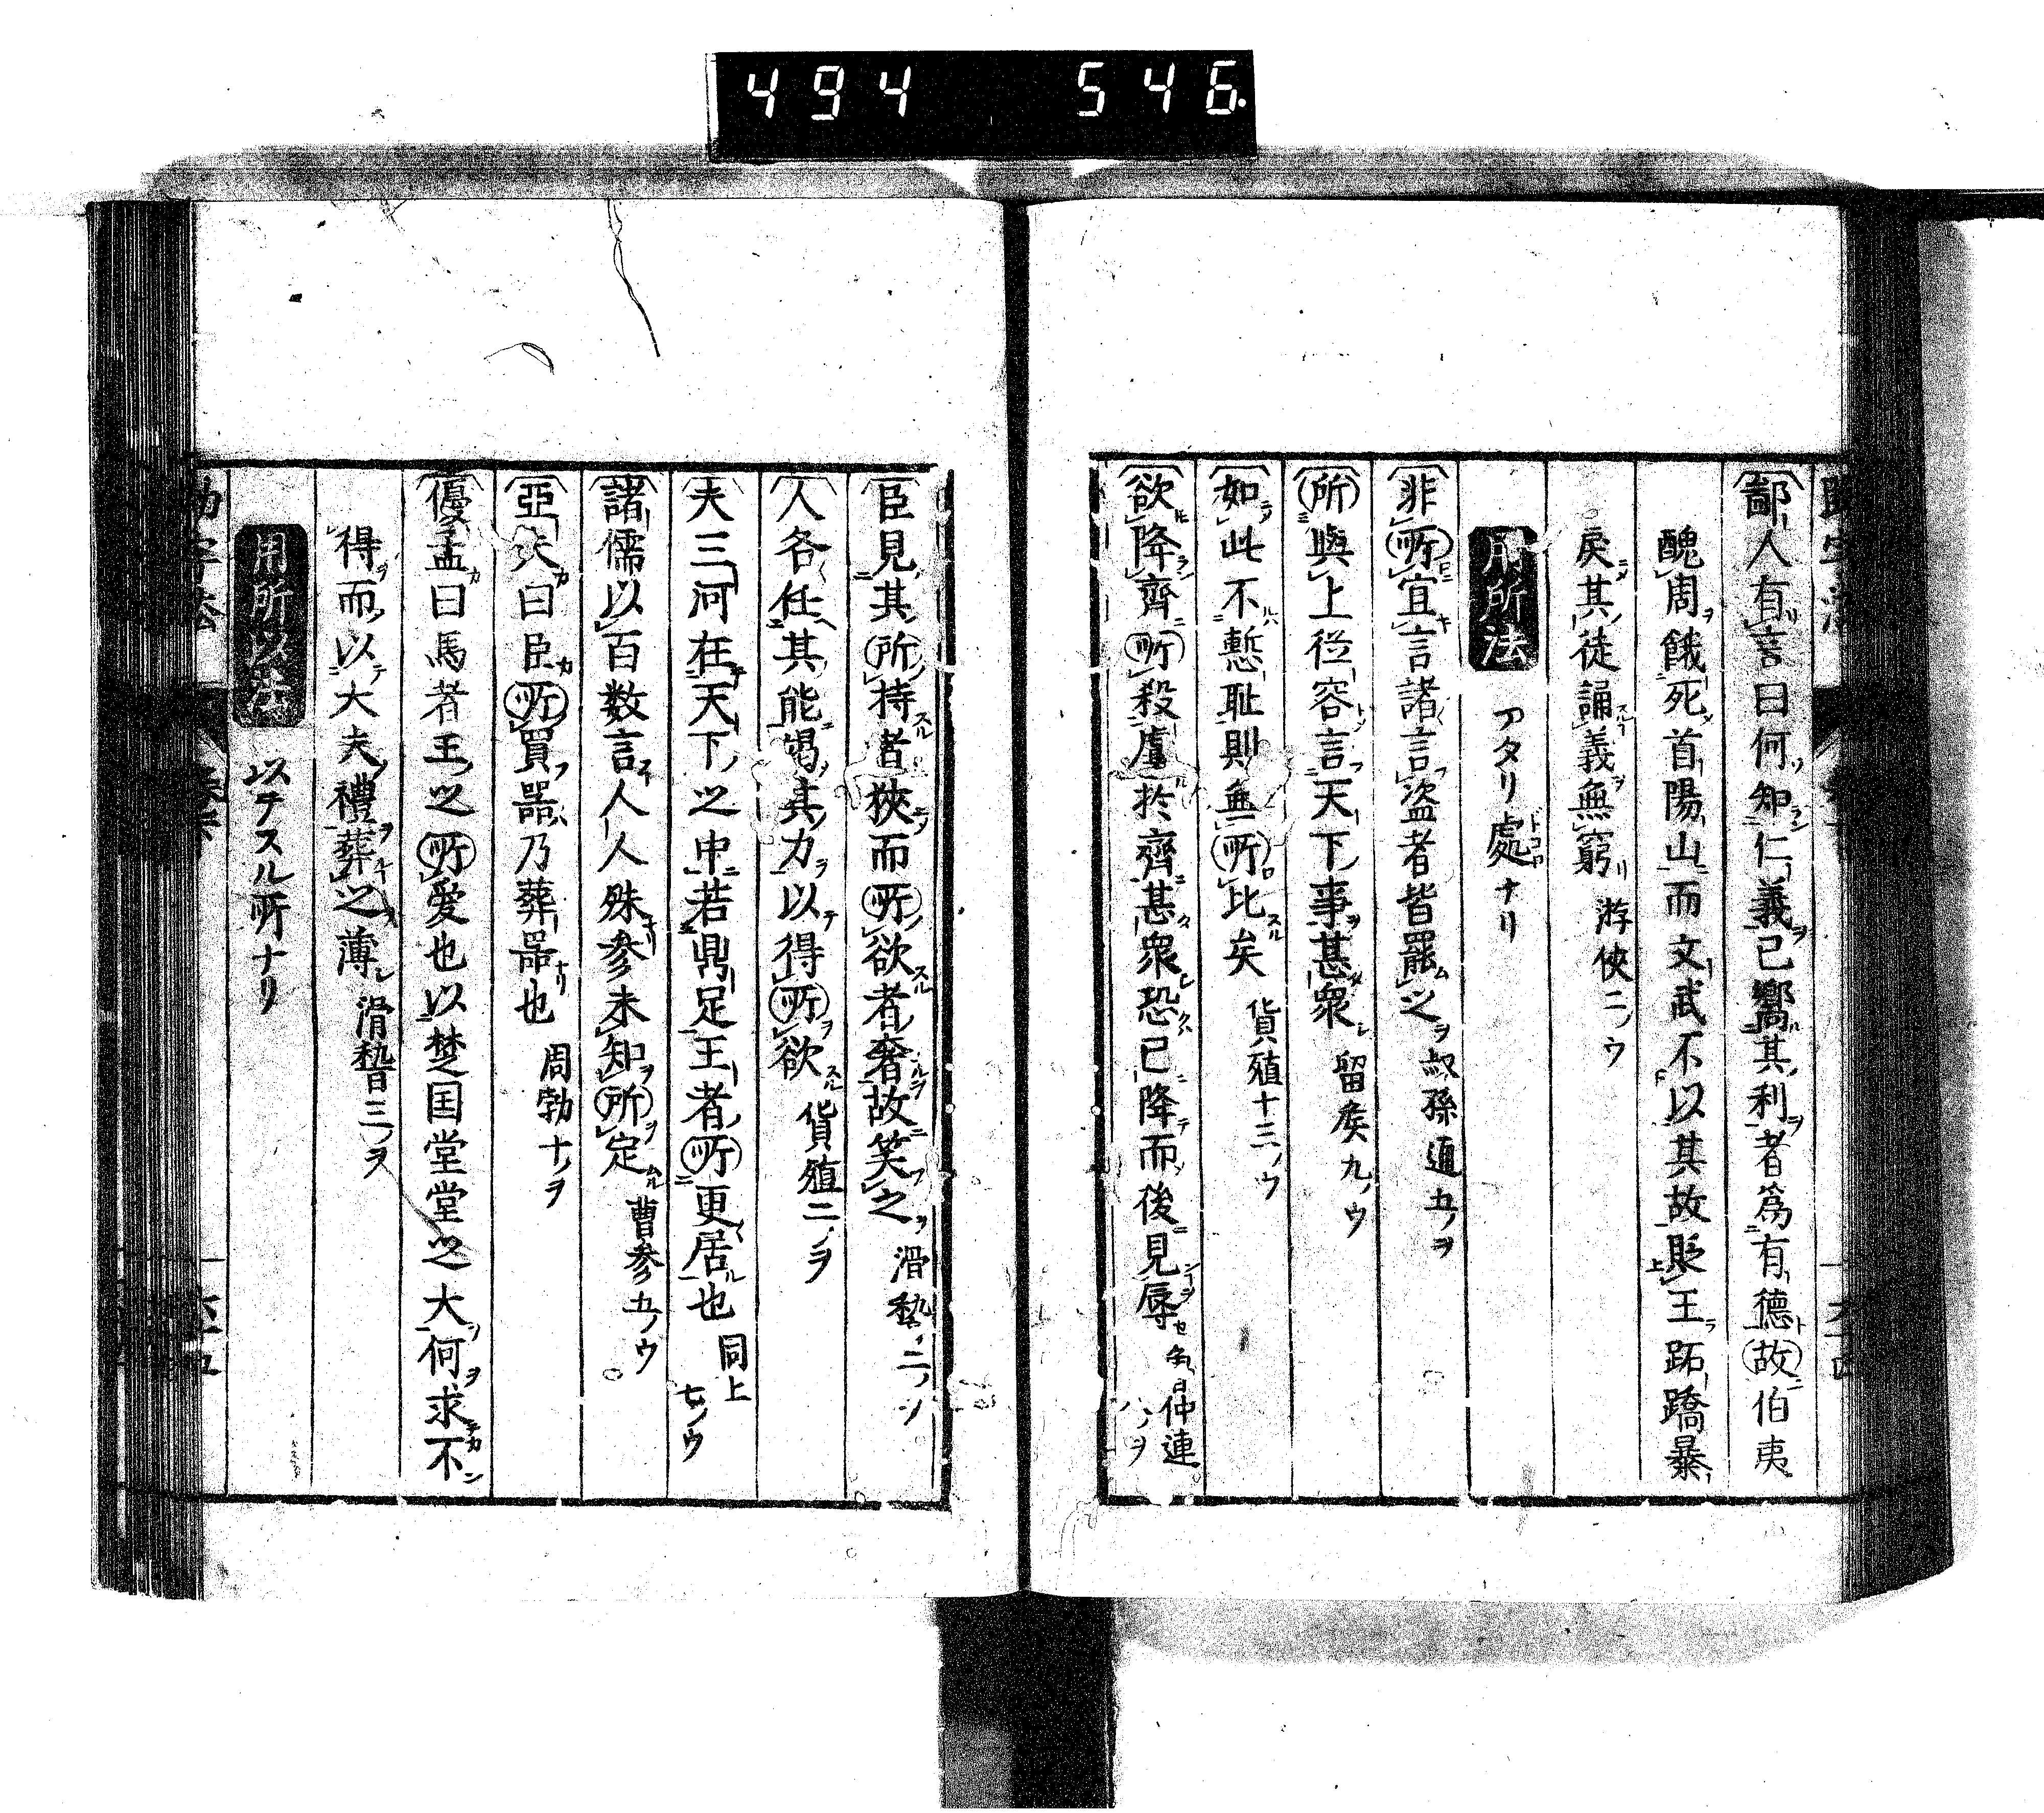 494 546.
鄙人有言曰何知仁義已嚮其利者爲有德故伯夷
醜周餓死首陽山而文武不以其故貶王跖蹻暴
戾其徒誦義無窮 游俠二ノウ
用所法 アタリ處ナリ
非所宜言諸言盜者皆罷之 叔孫通五ノヲ
所與上從容言天下事甚衆 留矦九ノウ
如此不慙耻則無所比矣 貨殖十三ノウ
欲降齊所殺虜於齊甚衆恐已降而後見辱 仲連 八ノヲ
臣見其所持者狹而所欲者奢故笑之 滑稽二ノ
人各任其能竭其力以得所欲 貨殖二ノヲ
夫三河在天下之中若鼎足王者所更居也 同上 七ノウ
諸儒以百数言人人殊參未知所定 曹參五ノウ
亞夫曰臣所買器乃葬器也 周勃十ノヲ
優孟曰馬者王之所愛也以楚国堂堂之大何求不
得而以大夫禮葬之薄 滑稽三ノヲ
用所以法 以テスル所ナリ
助字法
六十五